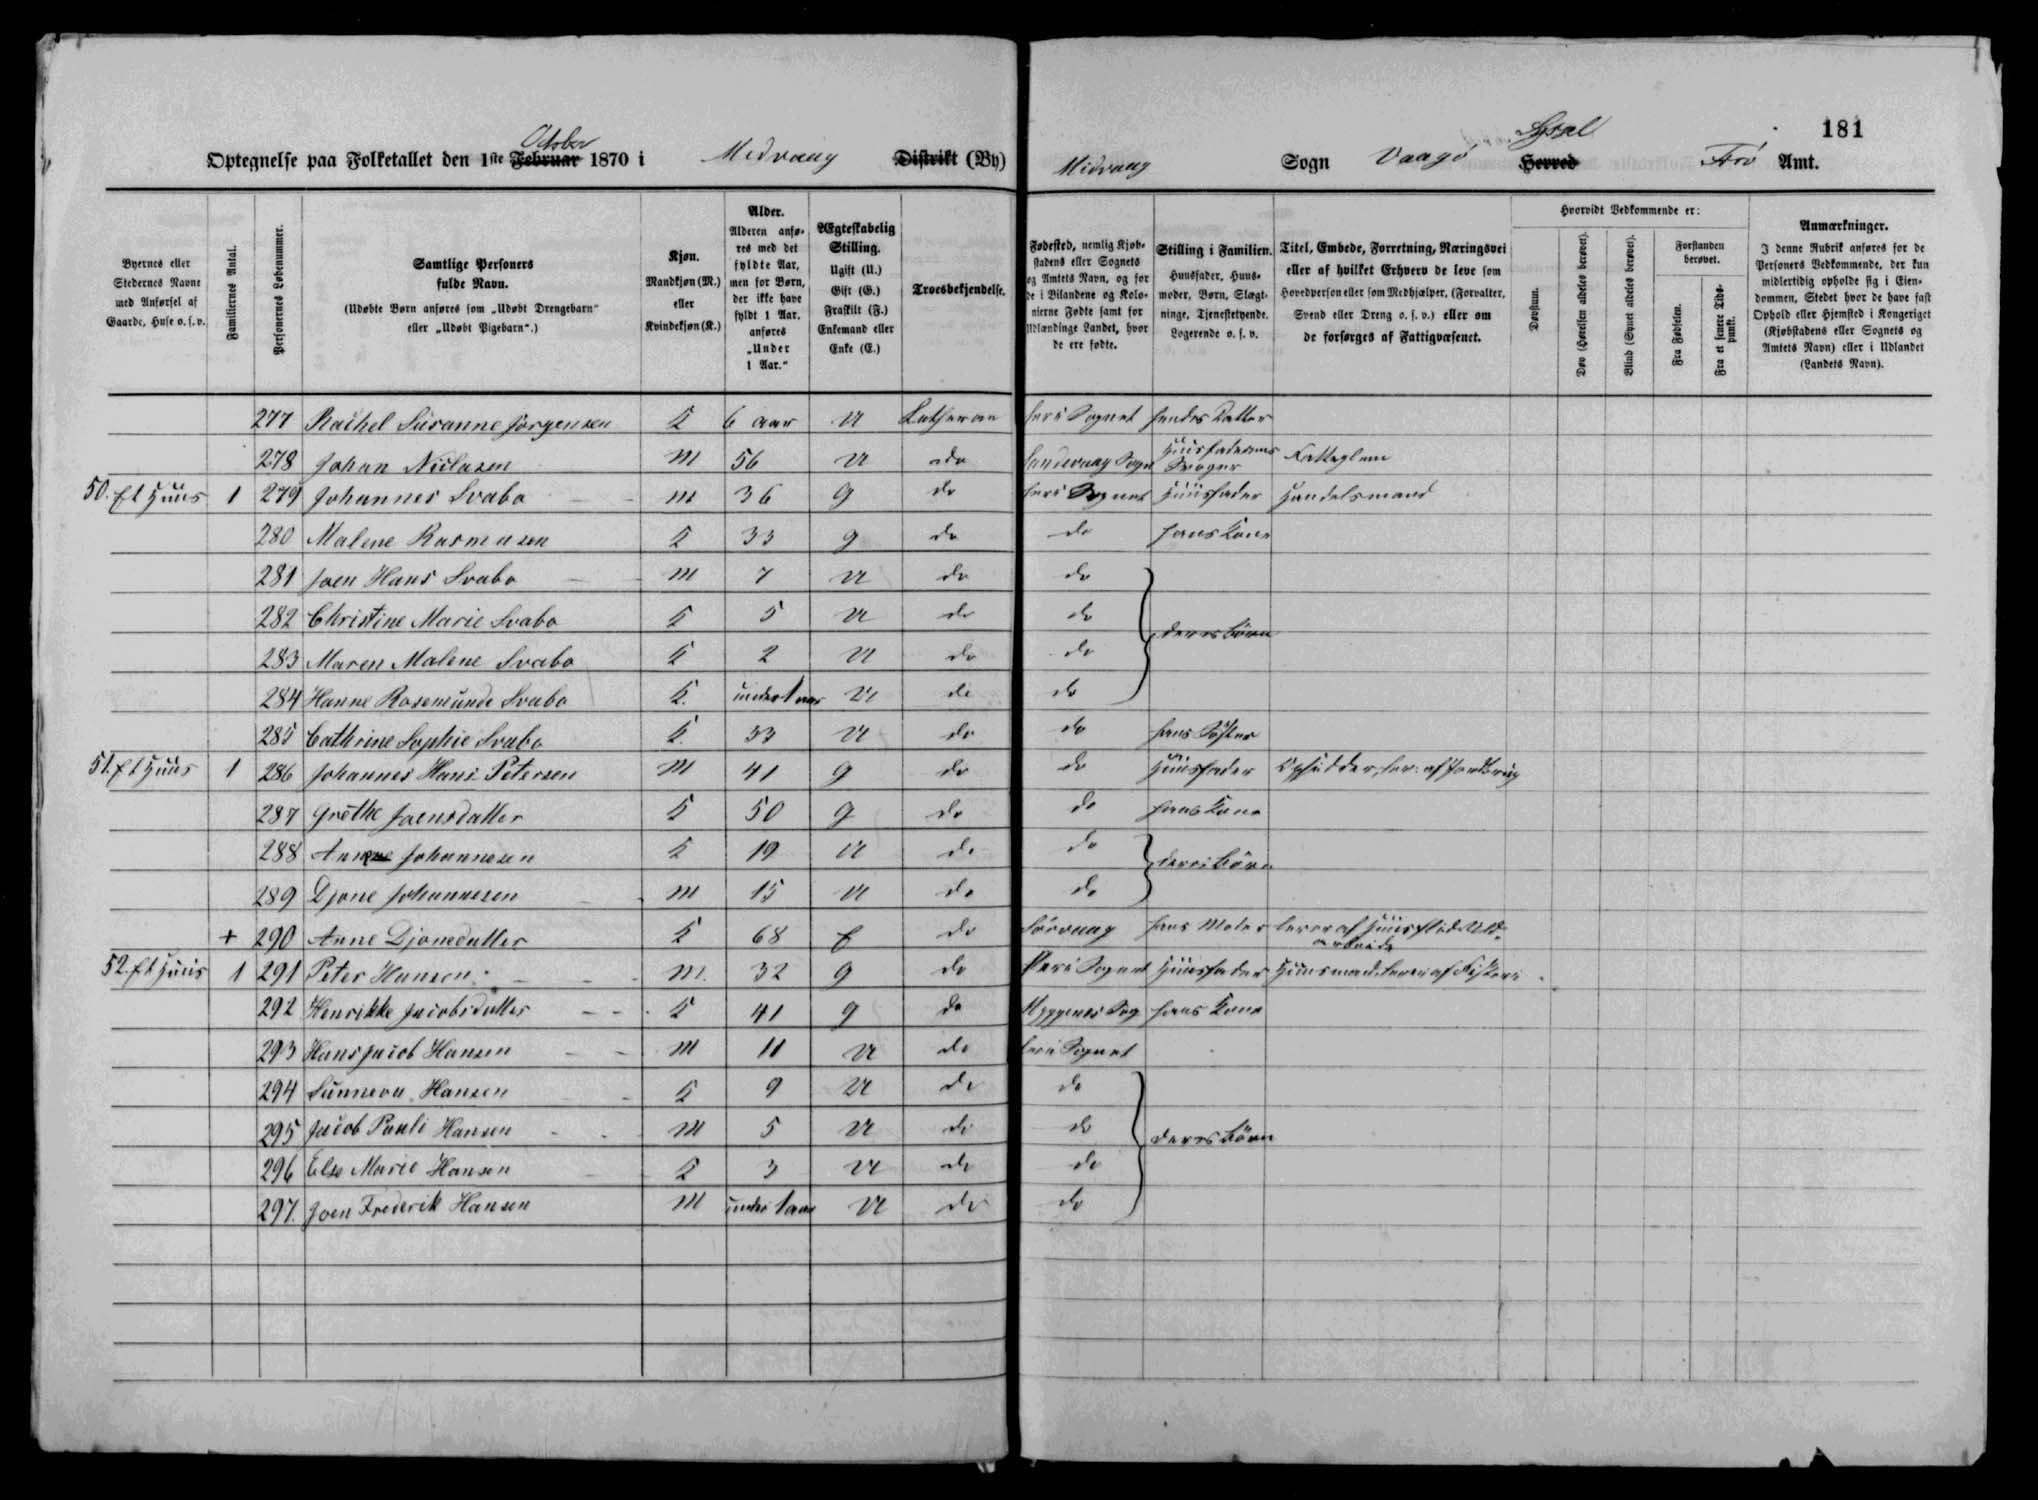 181
October Syssel
Optegnelse paa Folketallet den 1ste Februar 1870 i Medvaag Distrikt (By) Midvaag Sogn Vaagø Herred Færø Amt.
Byernes eller Stedernes Navne med Anførsel af Gaarde, Huse o. s. v.
Familiernes Antal.
Personernes Løbenummer.
Samtlige Personers fulde Navn.
(Udøbte Børn anføres som „Udøbt Drengebarn“ eller „Udøbt Pigebarn“.)
Kjøn.
Mandkjøn (M.) eller Kvindekjøn (K.)
Alder.
Alderen anføres med det fyldte Aar, men for Børn, der ikke have fyldt 1 Aar, anføres „Under 1 Aar.“
Ægteskabelig Stilling.
Ugift (U.)
Gift (G.)
Fraskilt (F.)
Enkemand eller Enke (E.)
Troesbekjendelse.
Fødested, nemlig Kjøbstadens eller Sognets og Amtets Navn, og for de i Bilandene og Kolonierne Fødte samt for Udlændinge Landet, hvor de ere fødte.
Stilling i Familien.
Huusfader, Huusmoder, Børn, Slægtninge, Tjenestetyende, Logerende o. s. v.
Titel, Embede, Forretning, Næringsvei eller af hvilket Erhverv de leve som Hovedperson eller som Medhjælper, (Forvalter, Svend eller Dreng o. s. v.) eller om de forsørges af Fattigvæsenet.
Hvorvidt Vedkommende er:
Døvstum.
Døv (Hørelsen aldeles berøvet).
Blind (Synet aldeles berøvet).
Forstanden berøvet.
Fra Fødselen.
Fra et senere Tidspunkt.
Anmærkninger.
I denne Rubrik anføres for de Personers Vedkommende, der kun midlertidig opholde sig i Eiendommen, Stedet hvor de have fast Ophold eller Hjemsted i Kongeriget (Kjøbstadens eller Sognets og Amtets Navn) eller i Udlandet (Landets Navn).
277 Rachel Susanne Jørgensen K 6 aar U Lutheran her i Sognet hendes Datter
278 Johan Niclasen M 56 U do Sandevaag Sogn Huusfaderens Svoger
50. Et Huus 1 279 Johannes Svabo M 36 g do her i Sognet Huusfader Handelsmand
280 Malene Rasmusen K 33 g do do hans Kone
281 Joen Hans Svabo M 7 U do do
282 Christine Marie Svabo K 5 U do do deres Børn
283 Maren Malene Svabo K 2 U do do
284 Hanne Rosemunde Svabo K. under 1 aar U do do
285 Cathrine Sophie Svabo K 33 U do do hans Søster
51. Et Huus 1 286 Johannes Hans Petersen M 41 g do do Huusfader Opsidder, lev: af Jordbrug
287 Grethe Joensdatter K 50 g do do hans Kone
288 Anne Johannesen K 19 U do do deres Børn
289 Djone Johannesen M 15 U do do
+ 290 Anne Djonedatter K 68 E do Sørvaag hans Moder lever af Huusflid Uldarbeide
52. Et Huus 1 291 Peter Hansen M. 32 g do her i Sognet Huusfader Huusmand, lever af Fiskeri
292 Henrikke Jacobsdatter K 41 g do Myggenes Sog hans Kone
293 Hans Jacob Hansen M 11 U do her i Sognet
294 Sunneva Hansen K 9 U do do
295 Jacob Pauli Hansen M 5 U do do deres Børn
296 Else Marie Hansen K 3 U do do
297. Joen Frederik Hansen M under 1 aar U do do